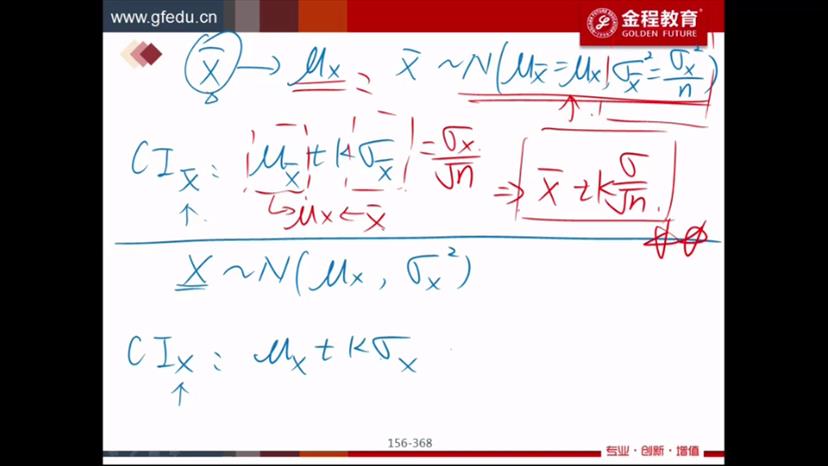 www.gfedu.cn
金程教育
GOLDEN FUTURE
X̄ → μx : X̄ ~ N(μx̄ = μx, σx̄² = σx²/n)
CI x̄ : μx̄ ± kσx̄ = σx/√n ⇒ X̄ ± k σ/√n
↳ μx ← x̄
X ~ N(μx, σx²)
CI x : μx ± kσx
156-368
专业·创新·增值